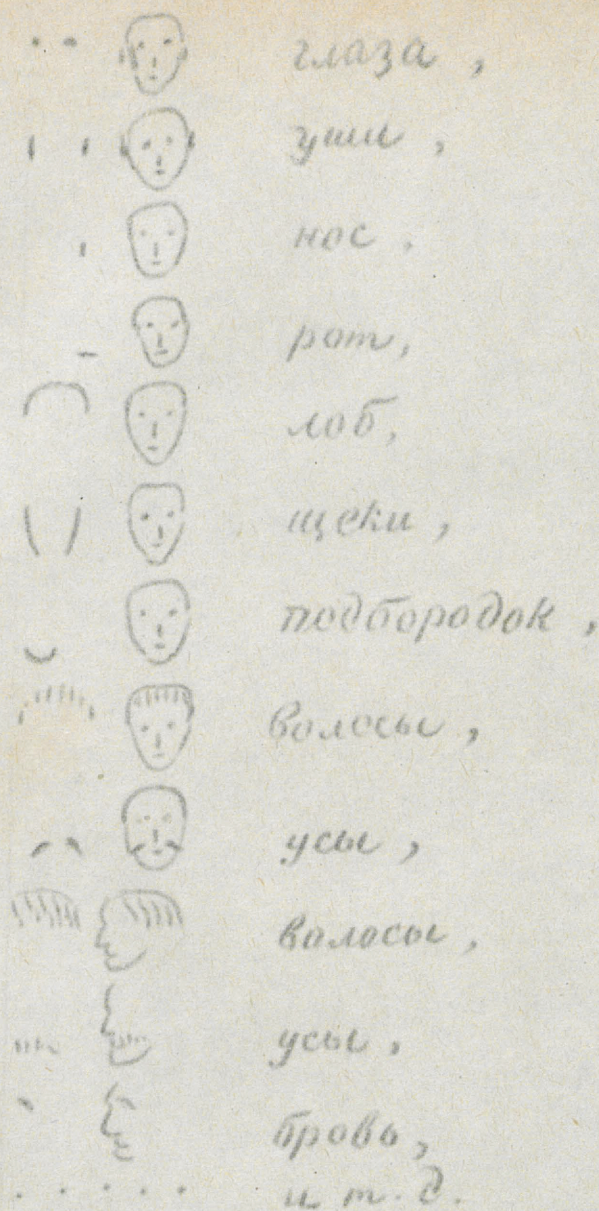 глаза,
уши,
нос.
рот,
лоб,
щеки,
подбородок,
волосы,
усы,
волосы,
усы,
бровь,
и т.д.